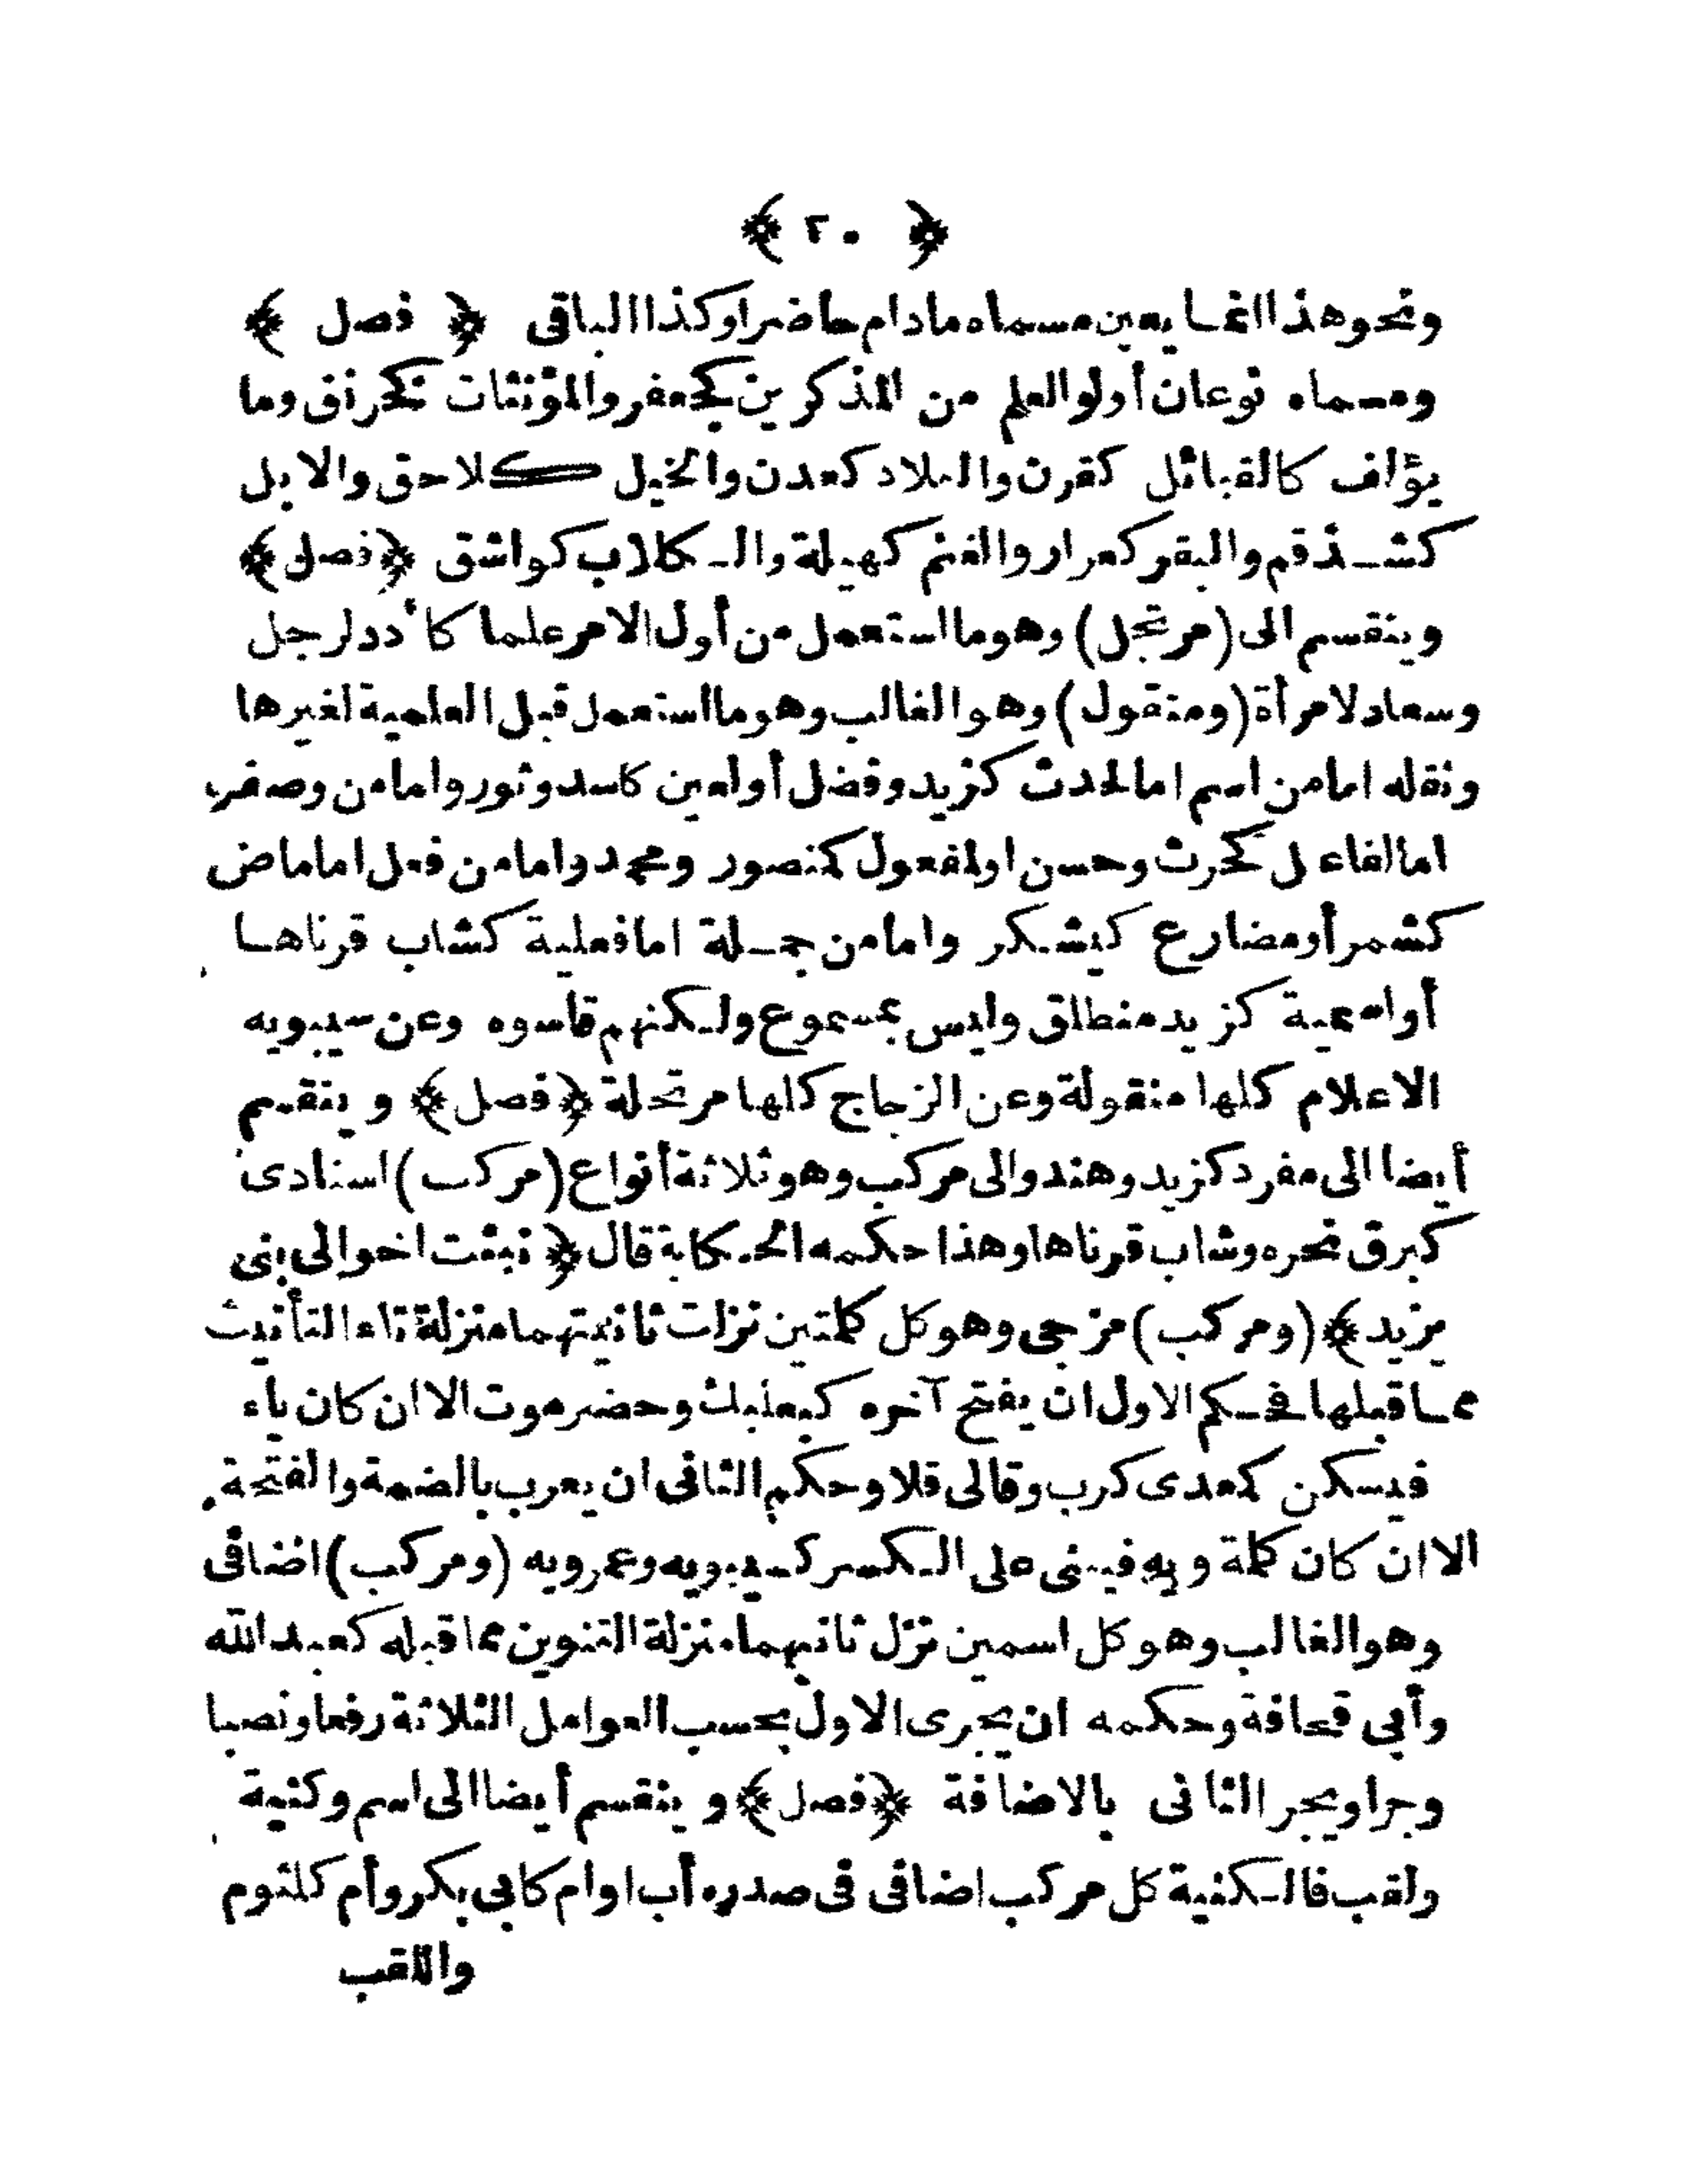 ﴿ ٢٠ ﴾
ونحو هذا انما يعين مسماه مادام حاضرا وكذا الباقى ﴿ فصل ﴾
ومسماه نوعان أولو العلم من المذكرين كجعفر والمؤنثات كخرنق وما
يؤلف كالقبائل كقرن والبلاد كعدن والخيل كلاحق والابل
كشذقم والبقر كعرار والغنم كهيلة والكلاب كواشق ﴿ فصل ﴾
وينقسم الى (مرتجل) وهو ما استعمل من أول الامر علما كأدد لرجل
وسعاد لامرأة (ومنقول) وهو الغالب وهو ما استعمل قبل العلمية لغيرها
ونقله اما من اسم اما لحدث كزيد وفضل أو لعين كاسد وثور واما من وصف
اما لفاعل كحرث وحسن او لمفعول كمنصور ومحمد واما من فعل اما ماض
كشمر أو مضارع كيشكر واما من جملة اما فعلية كشاب قرناها
أو اسمية كزيد منطلق وليس بمسموع ولكنهم قاسوه وعن سيبويه
الاعلام كلها منقولة وعن الزجاج كلها مرتجلة ﴿ فصل ﴾ وينقسم
أيضا الى مفرد كزيد وهند والى مركب وهو ثلاثة أنواع (مركب) اسنادى
كبرق نحره وشاب قرناها وهذا حكمه الحكاية قال ﴿ نبئت اخوالى بنى
يزيد ﴾ (ومركب) مزجى وهو كل كلمتين نزلت ثانيتهما منزلة تاء التأنيث
مما قبلها فحكم الاول ان يفتح آخره كبعلبك وحضرموت الا ان كان ياء
فيسكن كمعدى كرب وقالى قلا وحكم الثانى ان يعرب بالضمة والفتحة
الا ان كان كلمة ويه فيبنى على الكسر كسيبويه وعمرويه (ومركب) اضافى
وهو الغالب وهو كل اسمين نزل ثانيهما منزلة التنوين مما قبله كعبد الله
وأبى قحافة وحكمه ان يجرى الاول بحسب العوامل الثلاثة رفعا ونصبا
وجرا ويجر الثانى بالاضافة ﴿ فصل ﴾ وينقسم أيضا الى اسم وكنية
ولقب فالكنية كل مركب اضافى فى صدره أب او ام كابى بكر وأم كلثوم
واللقب